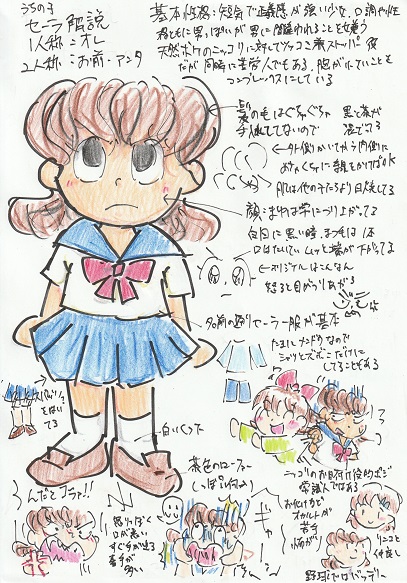 うちの子
セーラ解説
1人称=オレ
2人称=お前・アンタ
基本性格:短気で正義感が強い少女、口調や性
格ともに男っぽいが男に間違われることを嫌う
天然ボケのニッコリに対してツッコミ兼ストッパー役
だが同時に苦労人でもある、胸がないことを
コンプレックスにしている
髪の毛はぐちゃぐちゃ
手入れしてないので
黒と茶が
混ざってる
外側からかいてから内側に
おちゃくちゃに線をかけばOK
肌は他の子たちより日焼してる
顔:まゆは常につり上がってる
白目に黒い瞳、まつ毛は1本
口はたいていムッと端が下がってる
オリジナルはこんなん
怒ると目がつりあがる
名前の通りセーラー服が基本
たまにメンドウなので
シャツとズボンだけに
してることもある
スパッツ
をはいてる
白いくつ下
茶色のローファー
んだとコラァ!!
怒りっぽく
口が悪い
すぐ手が出る
ギャー
ニッコリのお目付け役的ポジ
常識人ではある
お化けなど
オカルトが
苦手
怖がり
リンゴと
仲良し